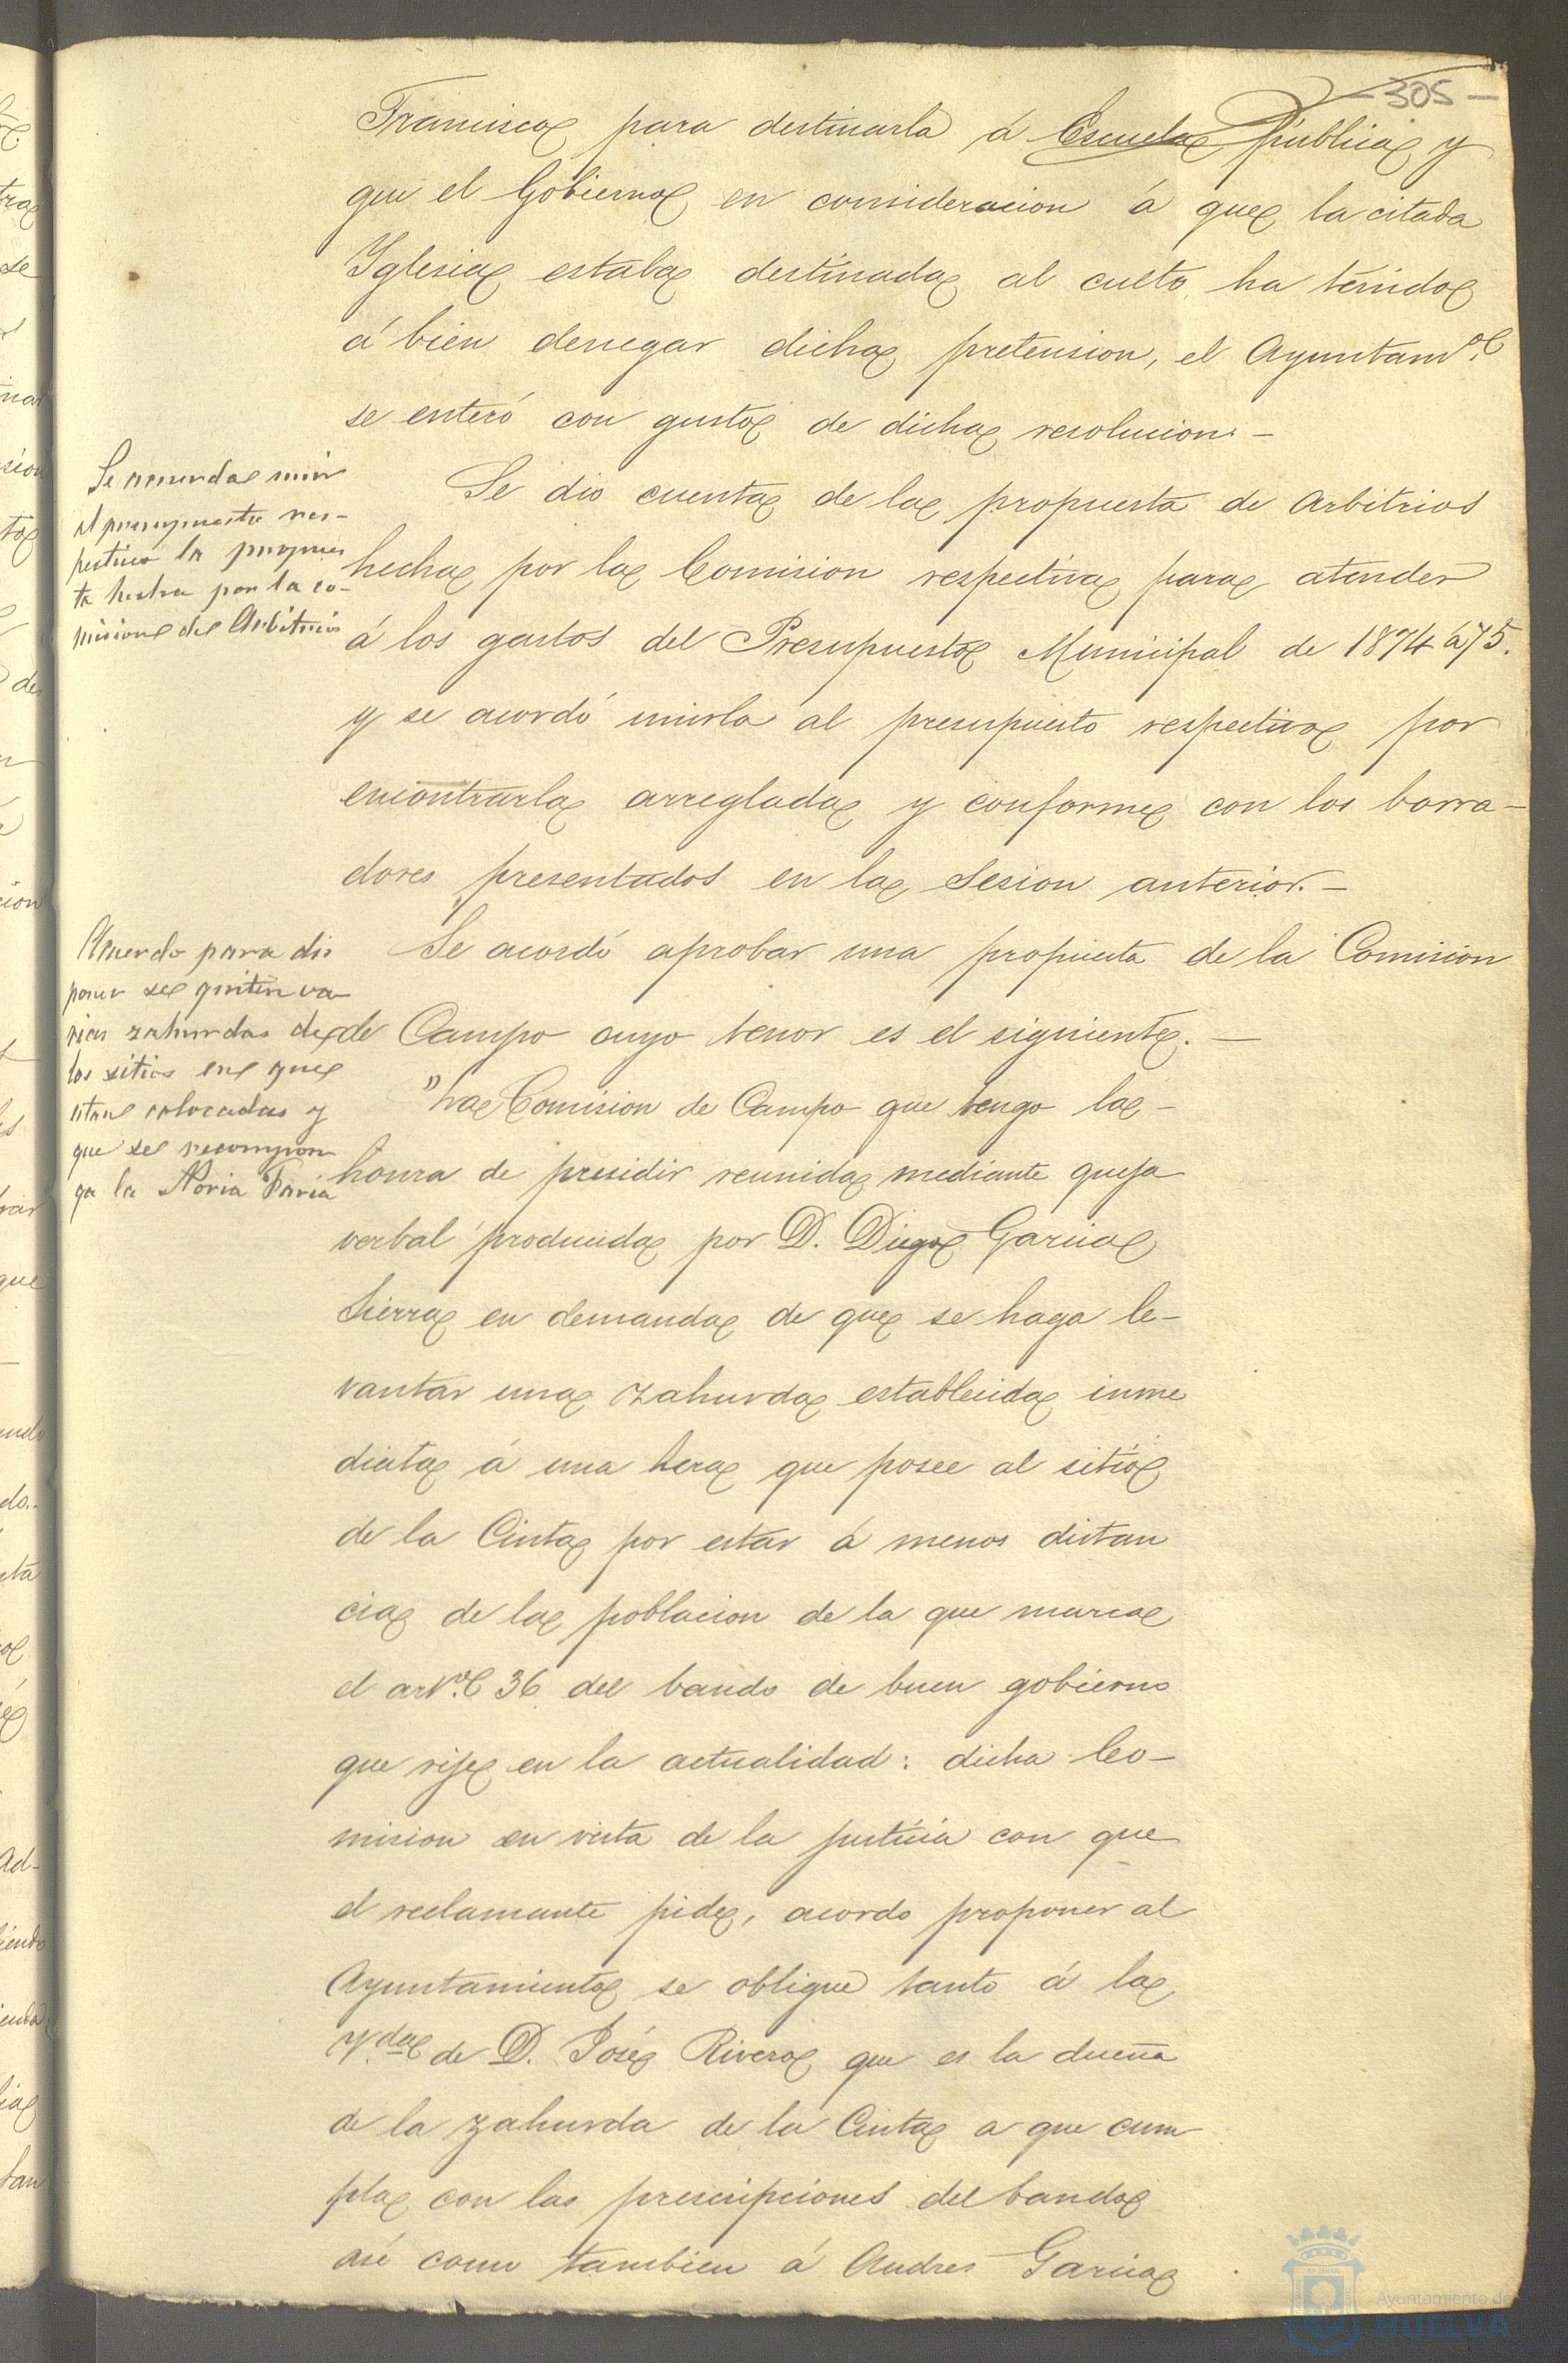 - 305 -
Francisco para destinarla á Escuela pública y
que el Gobierno en consideracion á que la citada
Yglesia estaba destinada al culto ha tenido
á bien denegar dicha pretension, el Ayuntamto.
se enteró con gusto de dicha resolucion. -
Se acuerda unir
el presupuesto res-
pectivo la propues
ta hecha por la co-
mision de Arbitrios
Se dio cuenta de la propuesta de Arbitrios
hecha por la Comision respectiva para atender
á los gastos del Presupuesto Municipal de 1874 á 75.
y se acordó unirla al presupuesto respectivo por
encontrarla arreglada y conforme con los borra-
dores presentados en la Sesion anterior. -
Acuerdo para dis
poner se quiten va
rias zahurdas de
los sitios en que
estan colocadas y
que se recompon
ga la Noria
Se acordó aprobar una propuesta de la Comision
de Campo cuyo tenor es el siguiente. -
"La Comision de Campo que tengo la -
honra de presidir reunida mediante queja
verbal producida por D. Diego Garcia
Sierra en demanda de que se haga le-
vantar una zahurda establecida inme
diata á una hera que posee al sitio
de la Cinta por estar á menos distan
cia de la poblacion de la que marca
el arto. 36 del bando de buen gobierno
que rije en la actualidad: dicha Co-
mision en vista de la justicia con que
el reclamante pide, acordo proponer al
Ayuntamiento se obligue tanto á la
Vda. de D. José Rivero que es la dueña
de la zahurda de la Cinta a que cum
pla con las prescripciones del bando
asi como tambien á Andres Garcia
Ayuntamiento de
HUELVA